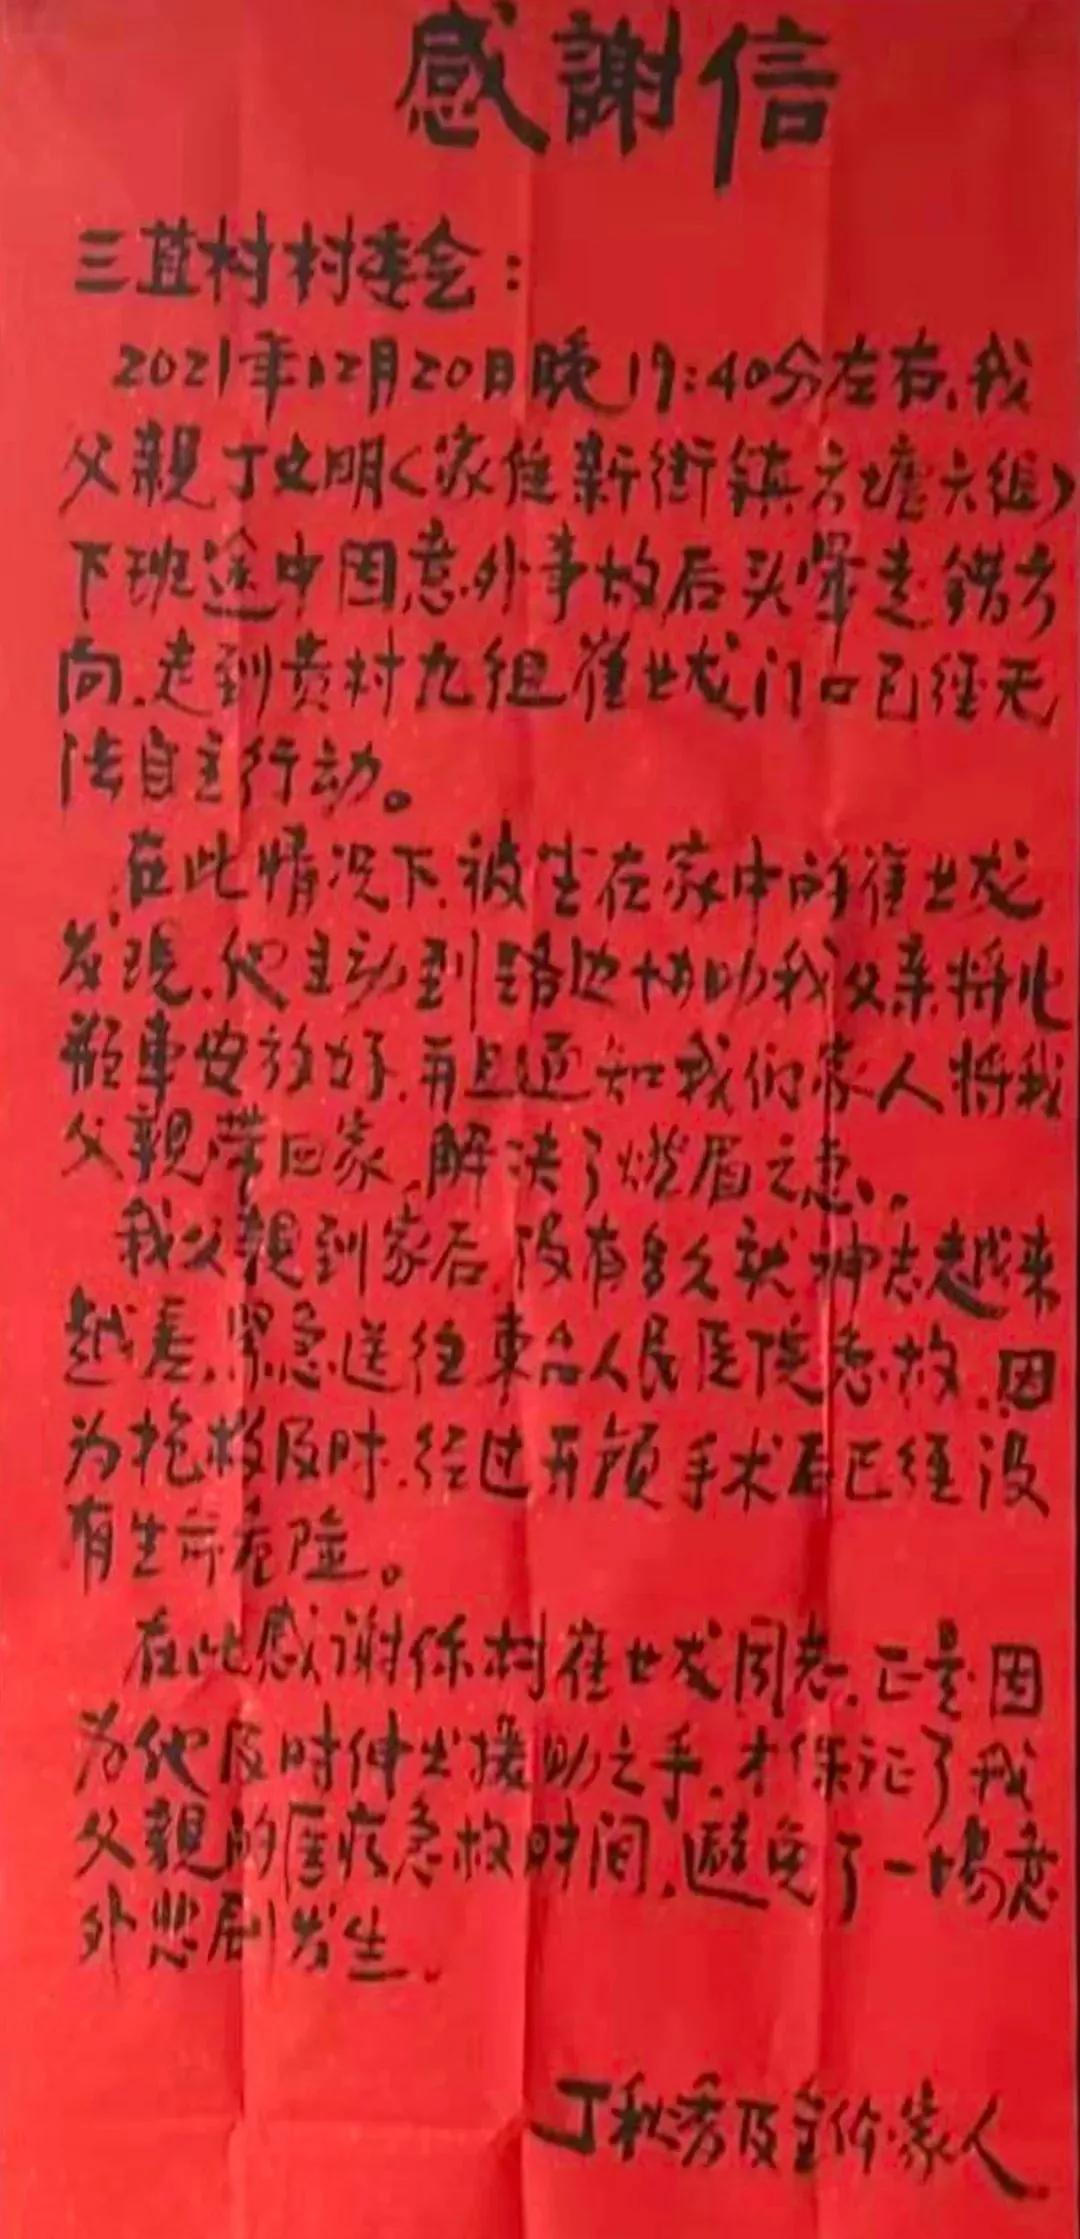 感謝信
三苴村村委会：
2021年12月20日晚17:40分左右，我
父親丁文明（家住新街镇方塘六组）
下班途中因意外事故后头晕走错方
向，走到贵村九组崔世龙门口已经无
法自主行动。
在此情况下，被坐在家中的崔世龙
发现，他主动到路边协助我父亲将此
辆車安放好，并且通知我们家人将我
父親带回家，解决了燃眉之急。
我父親到家后，没有多久就神志越来
越差，紧急送往東台人民医院急救，因
为抢救及时，经过开颅手术后已经没
有生命危险。
在此感谢你村崔世龙同志，正是因
为他及时伸出援助之手，才保证了我
父親的医疗急救时间，避免了一場意
外悲剧发生。
丁秋秀及全体家人